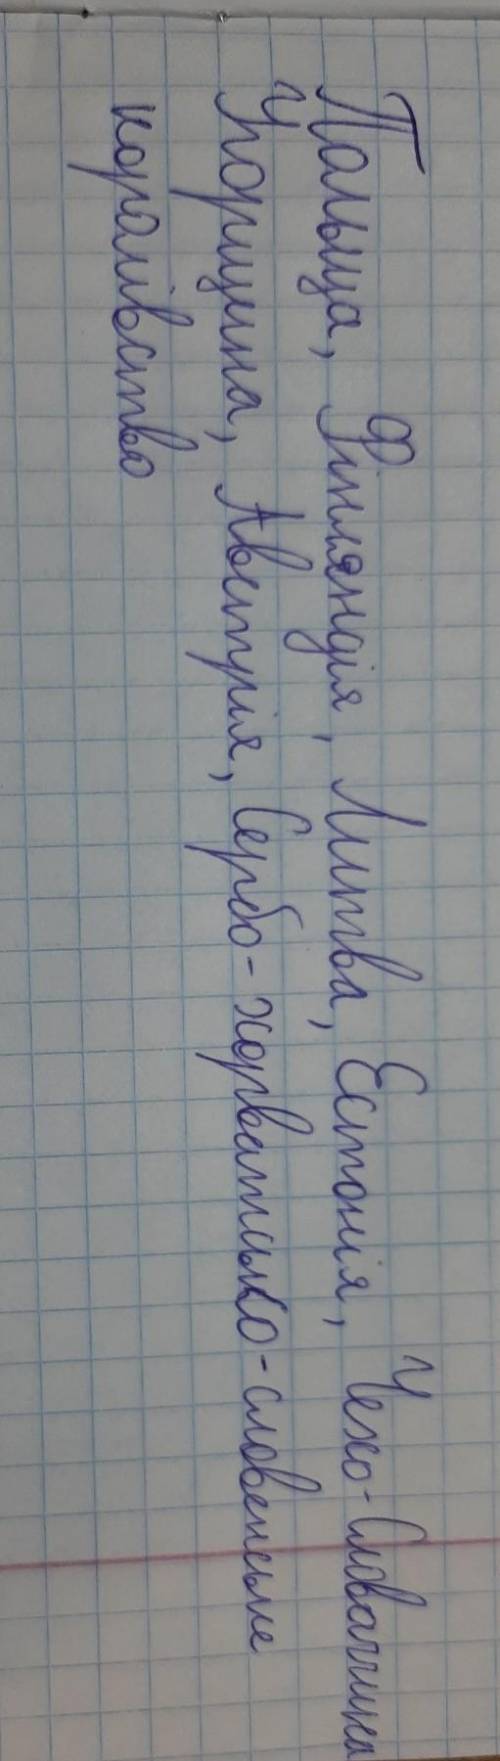 Польща, Фінляндія, Литва, Естонія, Чехо-Словаччина
Угорщина, Австрія, Сербо-хорватсько-словенське
королівство